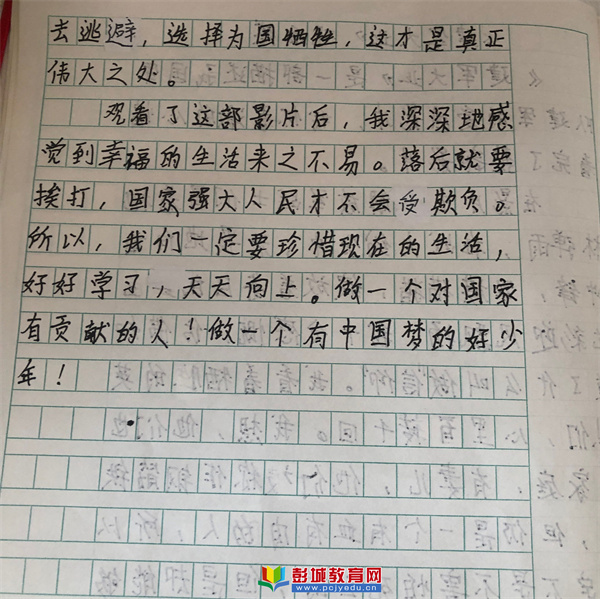 去逃避，选择为国牺牲，这才是真正
伟大之处。
观看了这部影片后，我深深地感
觉到幸福的生活来之不易。落后就要
挨打，国家强大人民才不会受欺负。
所以，我们一定要珍惜现在的生活，
好好学习，天天向上。做一个对国家
有贡献的人！做一个有中国梦的好少
年！
彭城教育网
www.pcjyedu.com